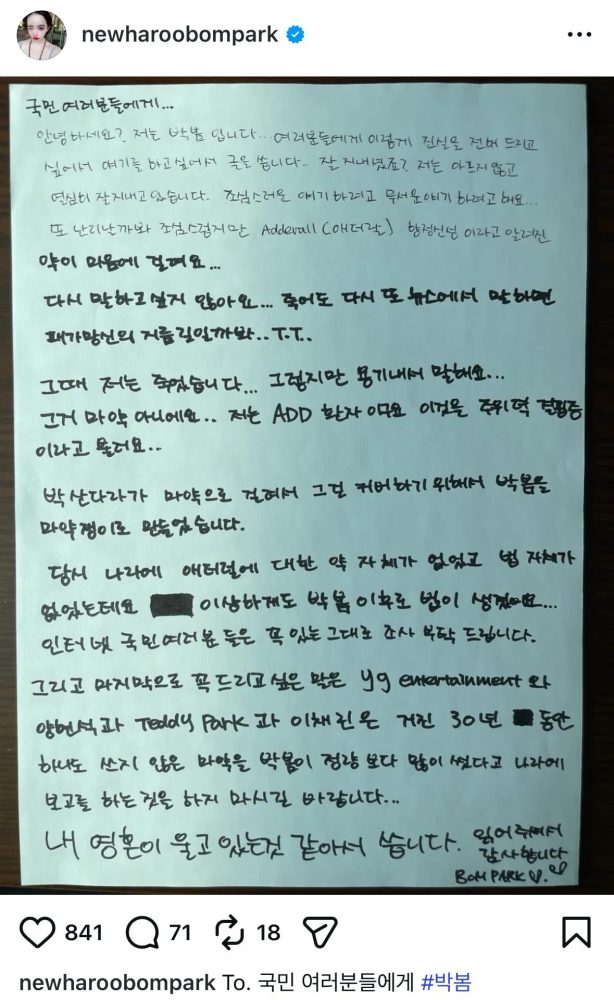 newharoobompark
국민여러분들에게...
안녕하세요? 저는 박봄 입니다.. 여러분들에게 이렇게 진실을 전해 드리고
싶어서 얘기를 하고싶어서 글을 씁니다. 잘지내셨죠? 저는 아프지않고
열심히 잘지내고있습니다. 조심스러운 얘기하려고 무서운얘기 하려고해요...
또 난리날까봐 조심스럽지만 Adderall (애더럴) 향정신성 이라고 알려진
약이 마음에 걸려요...
다시 말하고싶지 않아요... 죽어도 다시 또 뉴스에서 말하면
패가망신의 지름길일까봐..T.T..
그때 저는 죽었습니다... 그렇지만 용기내서 말해요...
그거 마약 아니에요.. 저는 ADD 환자 이구요 이것은 주위력 결핍증
이라고 불려요..
박산다라가 마약으로 걸려서 그걸 커버하기 위해서 박봄을
마약쟁이로 만들었습니다.
당시 나라에 애터럴에 대한 약 자체가 없었고 법 자체가
없었는데요 이상하게도 박봄 이후로 법이 생겼어요...
인터넷 국민여러분 들은 꼭 있는그대로 조사 부탁 드립니다.
그리고 마지막으로 꼭드리고 싶은 말은 yg entertainment 와
양현석과 Teddy Park 과 이채린은 거진 30년 동안
하나도 쓰지 않은 마약을 박봄이 정량 보다 많이 썼다고 나라에
보고를 하는것을 하지 마시길 바랍니다...
내 영혼이 울고 있는것 같아서 씁니다. 읽어주셔서
감사합니다
BOM PARK ♡.♡
841 71 18
newharoobompark To. 국민 여러분들에게 #박봄